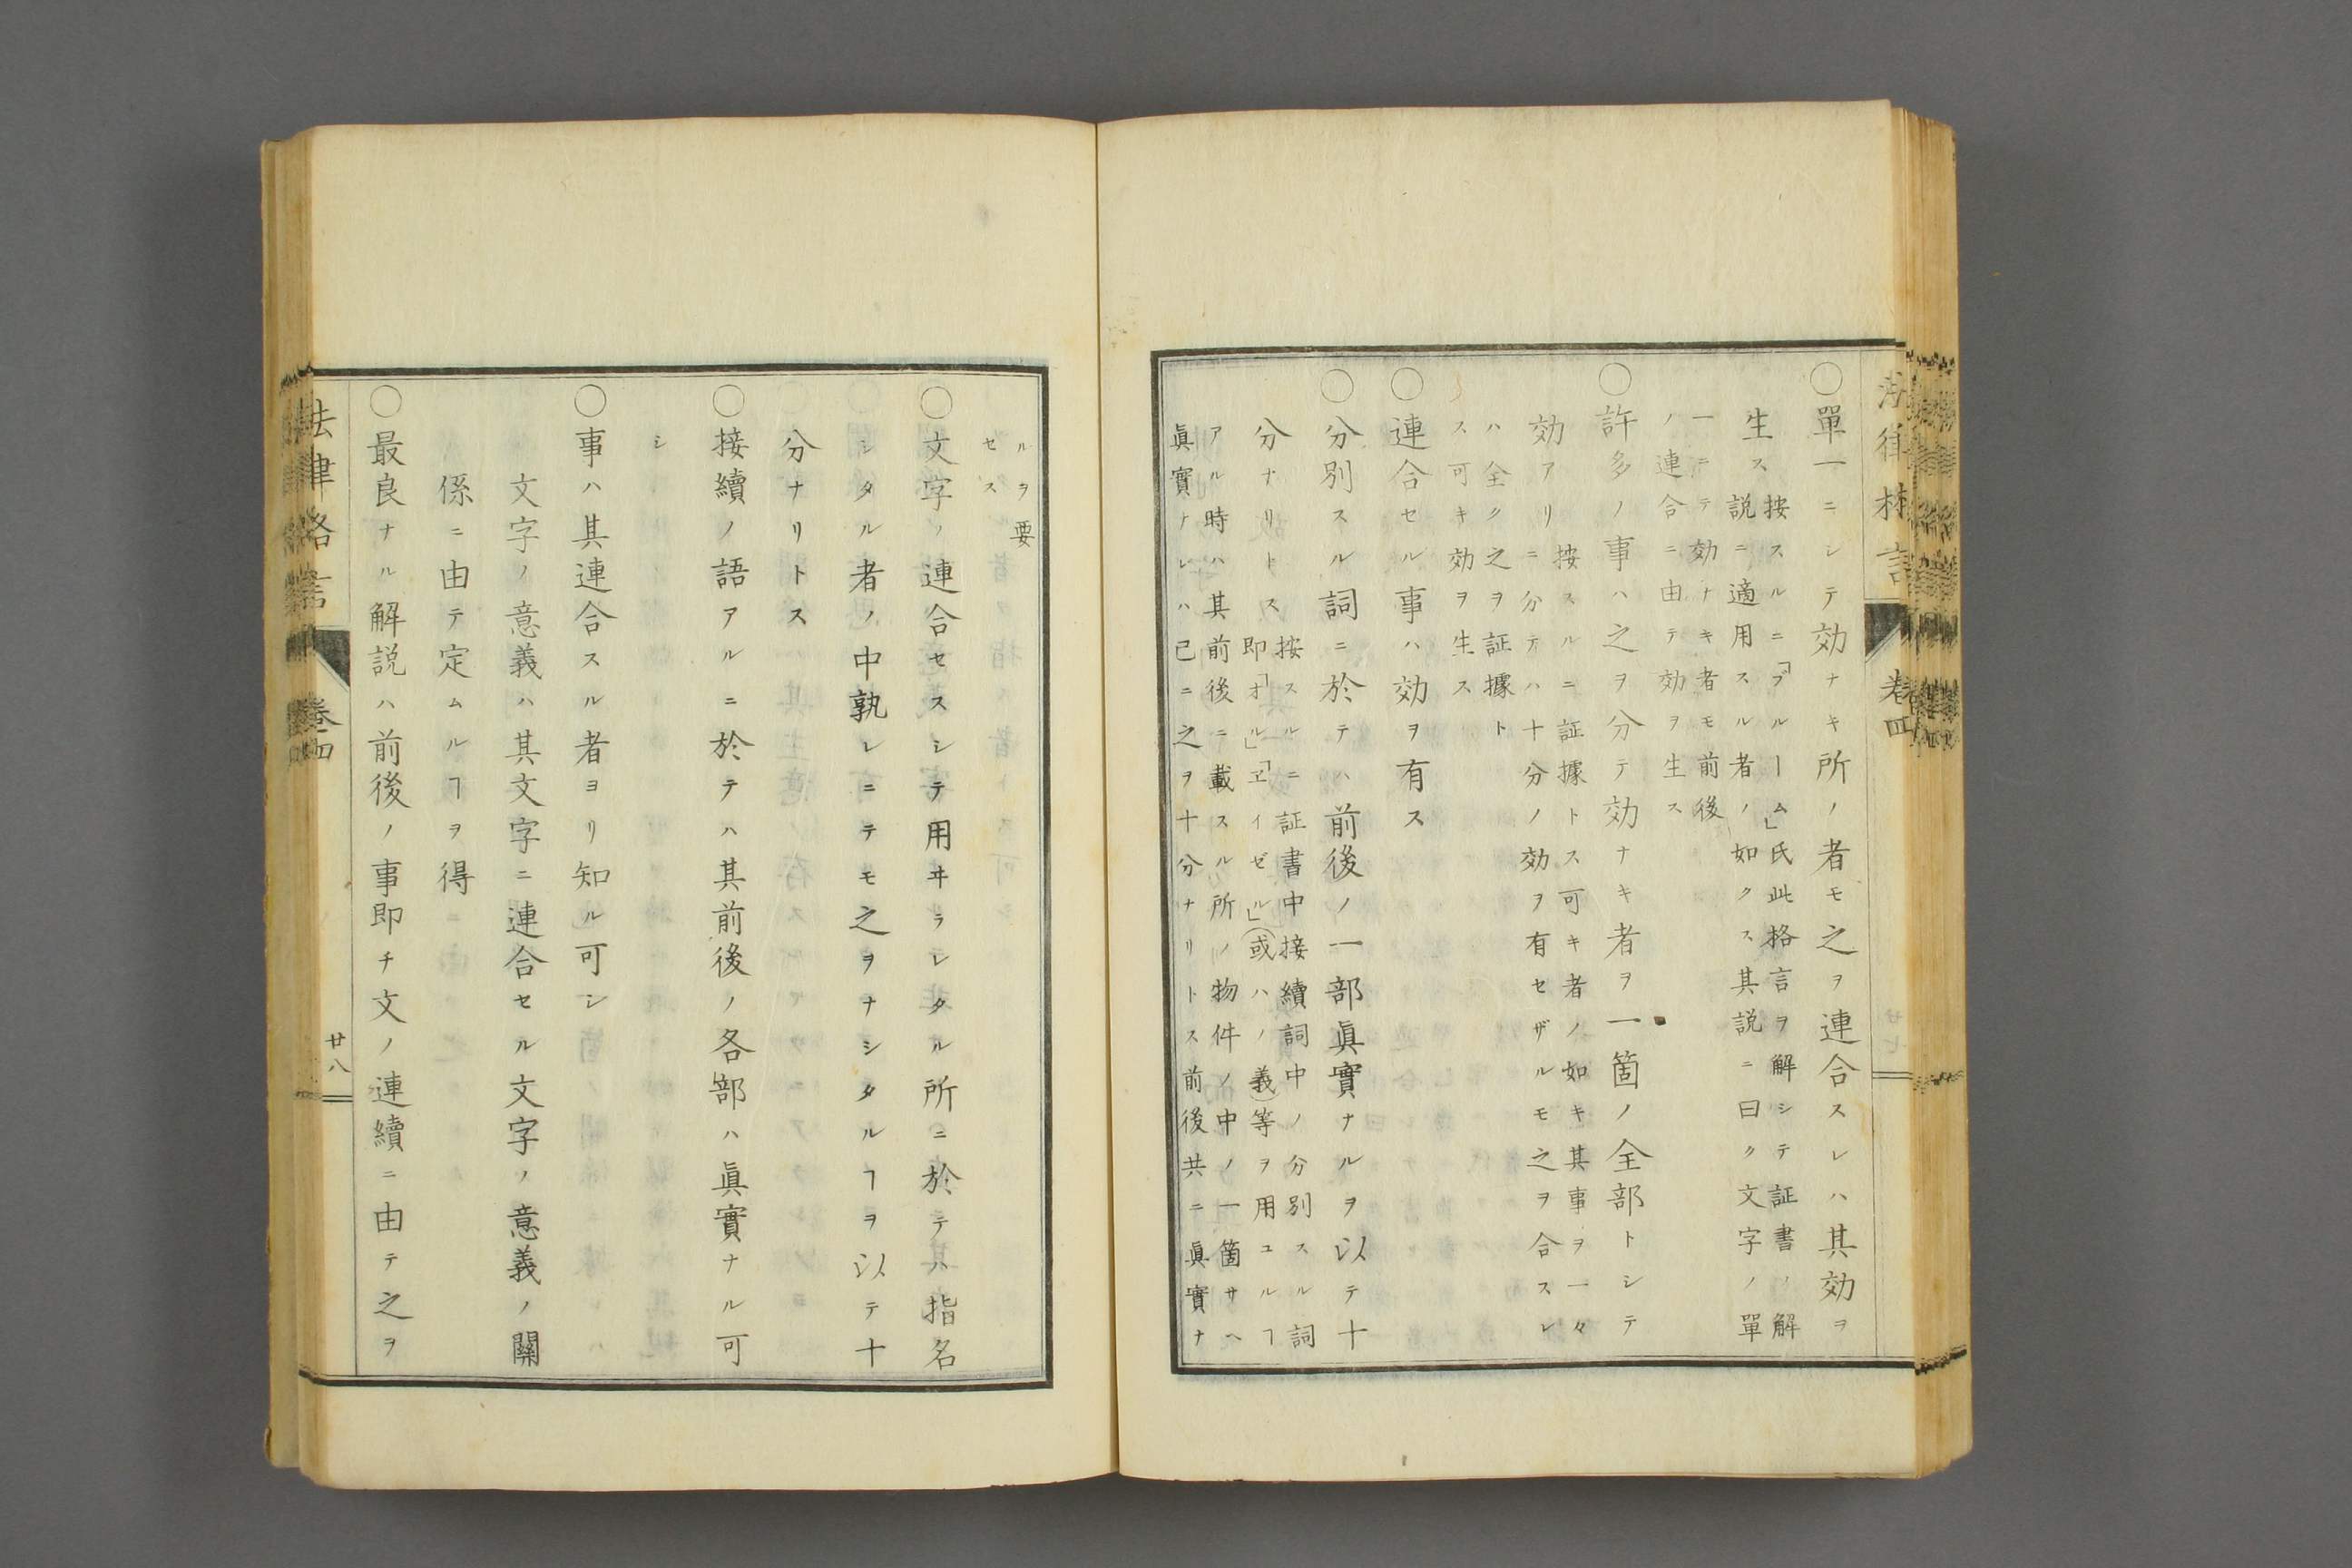 法律格言 卷四
○單一ニシテ効ナキ所ノ者モ之ヲ連合スレハ其効ヲ
生ス
按スルニ「ブルーム」氏此格言ヲ解シテ証書ノ解
説ニ適用スル者ノ如クス其説ニ曰ク文字ノ單
一ニテ効ナキ者モ前後
ノ連合ニ由テ効ヲ生ス
○許多ノ事ハ之ヲ分テ効ナキ者ヲ一箇ノ全部トシテ
効アリ
按スルニ証據トス可キ者ノ如キ其事ヲ一々
ニ分テハ十分ノ効ヲ有セザルモ之ヲ合スレ
ハ全ク之ヲ証據ト
ス可キ効ヲ生ス
○連合セル事ハ効ヲ有ス
○分別スル詞ニ於テハ前後ノ一部眞實ナルヲ以テ十
分ナリトス
按スルニ証書中接續詞中ノ分別スル詞
即「オル」「ヱイゼル」(或ハノ義)等ヲ用ユルヿ
アル時ハ其前後ニ載スル所ノ物件ノ中ノ一箇サヘ
眞實ナレハ已ニ之ヲ十分ナリトス前後共ニ眞實ナ
ルヲ要
セス
○文字ノ連合セスシテ用ヰラレタル所ニ於テ其指名
シタル者ノ中孰レニテモ之ヲナシタルヿヲ以テ十
分ナリトス
○接續ノ語アルニ於テハ其前後ノ各部ハ眞實ナル可
シ
○事ハ其連合スル者ヨリ知ル可シ
文字ノ意義ハ其文字ニ連合セル文字ノ意義ノ關
係ニ由テ定ムルヿヲ得
○最良ナル解説ハ前後ノ事即チ文ノ連續ニ由テ之ヲ
法律格言 卷四 廿八